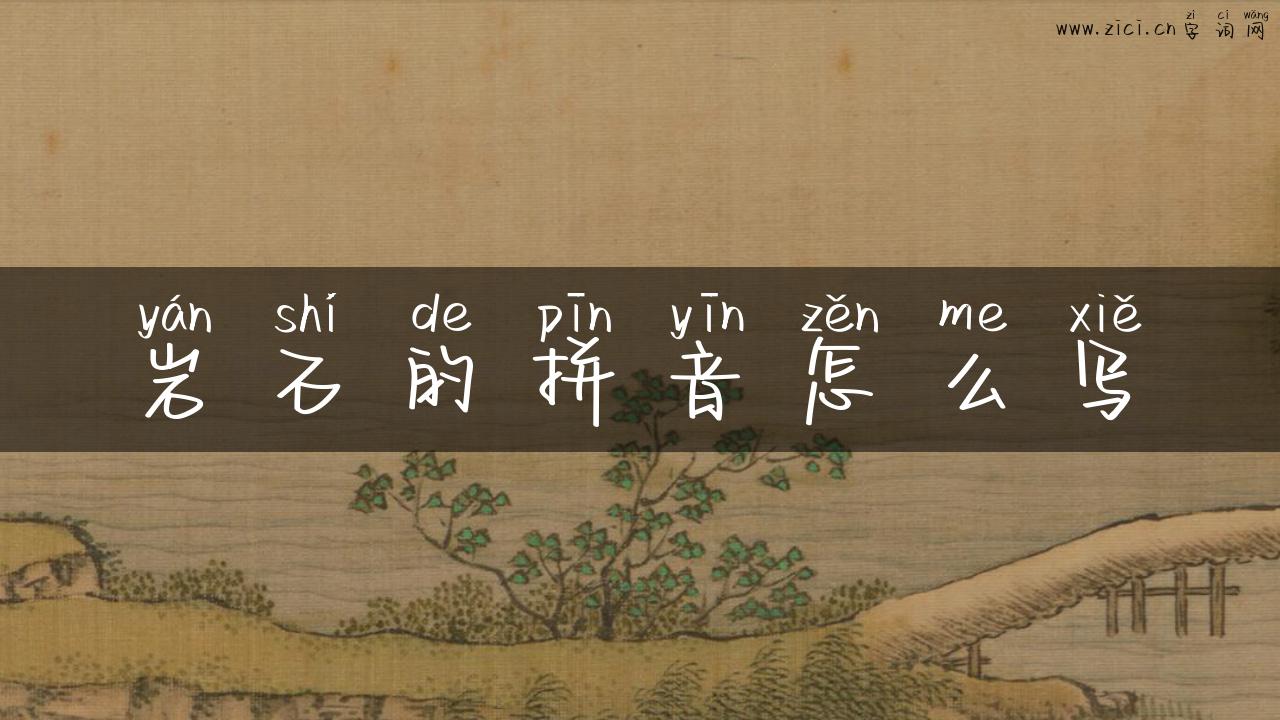 zì cí wǎng
www.zici.cn 字词网
yán shí de pīn yīn zěn me xiě
岩石的拼音怎么写